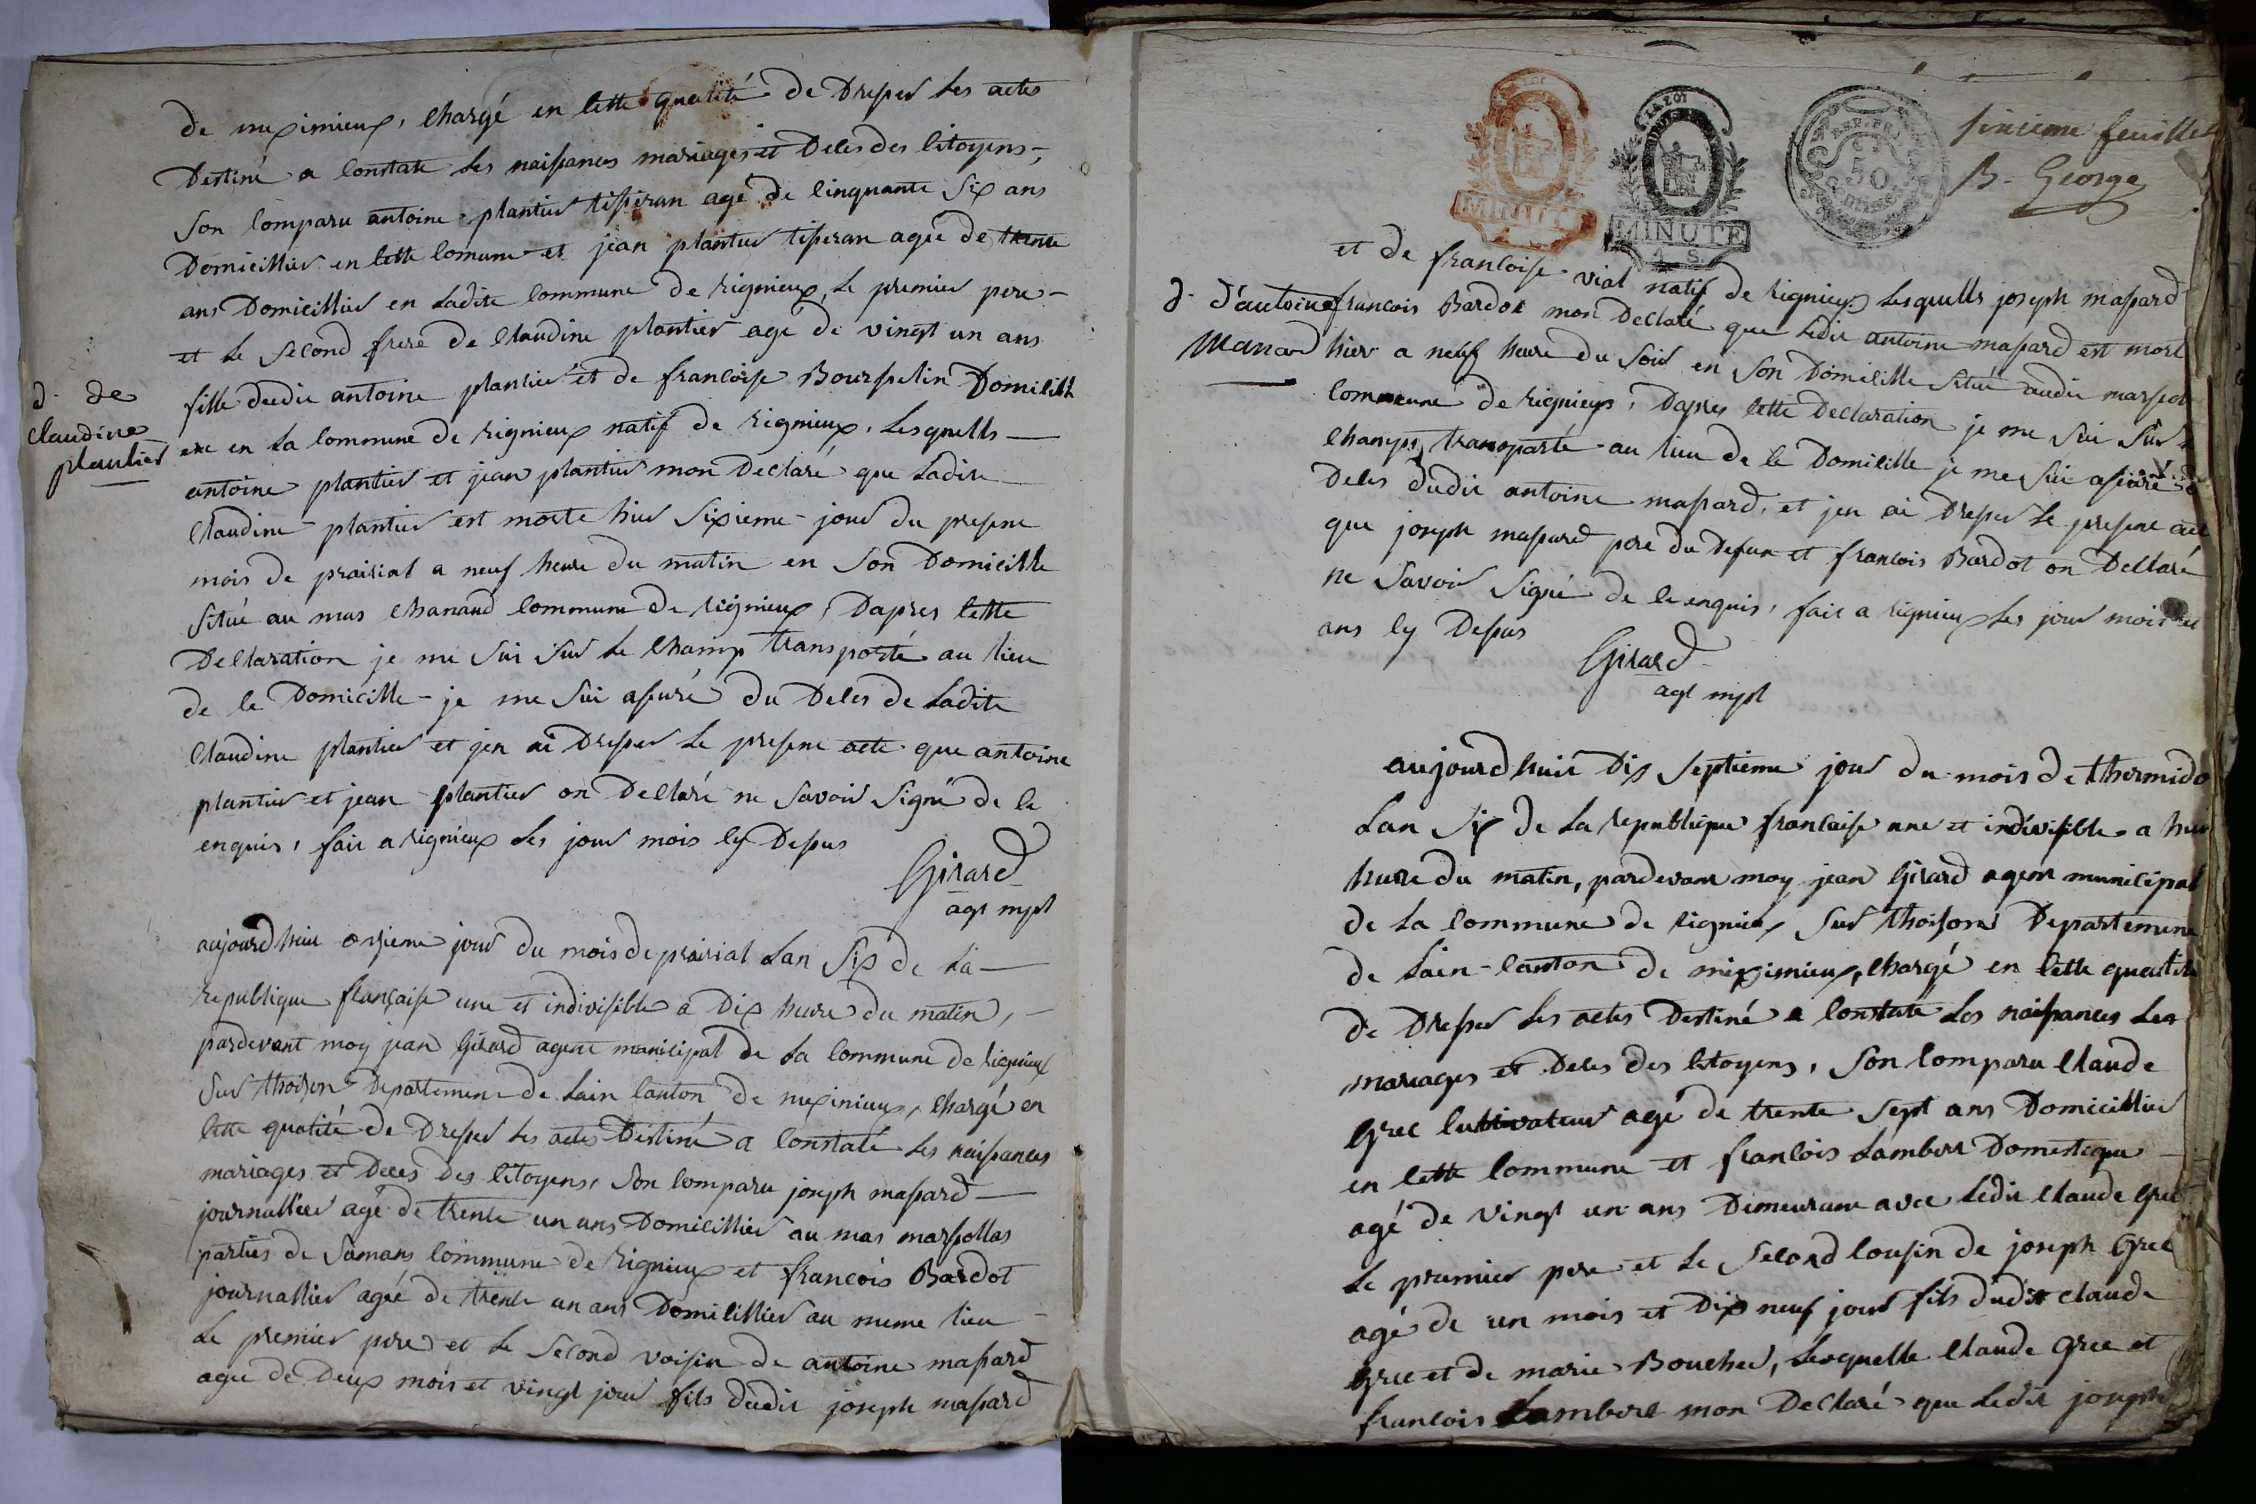 de meximieux, chargé en cette qualité de dresser les actes
destiné a constate les naissances mariages et deces des citoyens,
son comparu antoine plantier tisseran agé de cinquante six ans
domicillier en cette comune et jean plantier tisseran agée de trente
ans domicillier en ladite commune de rignieux, le premier pere
et le second frere de claudine plantier agé de vingt un ans
d. de
claudine
plantier
fille dudit antoine plantier et de francoise Bourselin domicill
ere en la commune de rignieux natif de rignieux. lesquells
antoine plantier et jean plantier mon declaré que ladite
claudine plantier est morte hier sixieme jour du present
mois de prairial a neuf heure du matin en son domicille
situé au mas chanaud commune de rignieux, dapres cette
declaration je me sui sur le champ transporté au lieu
de ce domicille je me sui assuré du deces de ladite
claudine plantier et jen ai dresser le present acte que antoine
plantier et jean plantier on declaré ne savoir signé de ce
enquis, fait a rignieux les jour mois cy dessus
Girard
agt mpl
aujourdhuit onzieme jour du mois de prairial lan six de la
republique française une et indivisible a dix heure du matin,
pardevant moy jean Girard agent municipal de la commune de rignieux
sur thoizon departement de lain canton de meximieux, chargé en
cette qualité de dresser les actes destiné a constaté les naissances
mariages et deces des citoyens, son comparu joseph massard
journallier agé de trente un ans domicillier au mas marsollas
parties de samans commune de rignieux et francois Bardot
journallier agée de trente un ans domicillier au meme lieu
le premier pere et le second voisin de antoine massard
agée de deux mois et vingt jour fils dudit joseph massard
MINUTE
LA LOI
MINUTE
A. S.
REP. FRA.
50
CENTIMES
sixieme feuillet
B. George
et de francoise vial natif de rignieux lesquells joseph massard
d. d'antoine
Massard
francois Bardot mon declaré que ledit antoine massard est mort
hier a neuf heure du soir en son domicille situé audit marsol
commune de rignieux, dapres cette declaration je me sui sur le
champs transporté au lieu de ce domicille je me sui assuré du
deces dudit antoine massard, et jen ai dresser le present acte
que joseph massard pere du defun et francois Bardot on declaré
ne savoir signé de ce enquis, fait a rignieux les jour mois et
ans cy dessus
Girard
agt mpl
aujourdhuit dix septieme jour du mois de thermido
lan six de la republique francaise une et indivisible a huit
heure du matin, pardevant moy jean Girard agent municipal
de la commune de rignieux sur thoizon departement
de lain canton de meximieux, chargé en cette qualité
de dresser les actes destiné a constate les naissances les
mariages et deces des citoyens, son comparu claude
Gree cultivateur agé de trente sept ans domicillier
en cette commune et francois Lambert domestique
agé de vingt un ans demeurant avec ledit claude Gree
le premier pere et le second cousin de joseph Gree
agé de un mois et dix neuf jour fils dudit claude
Gree et de marie Boucher, lesquelle claude Gree et
francois Lambert mon declaré que ledit joseph